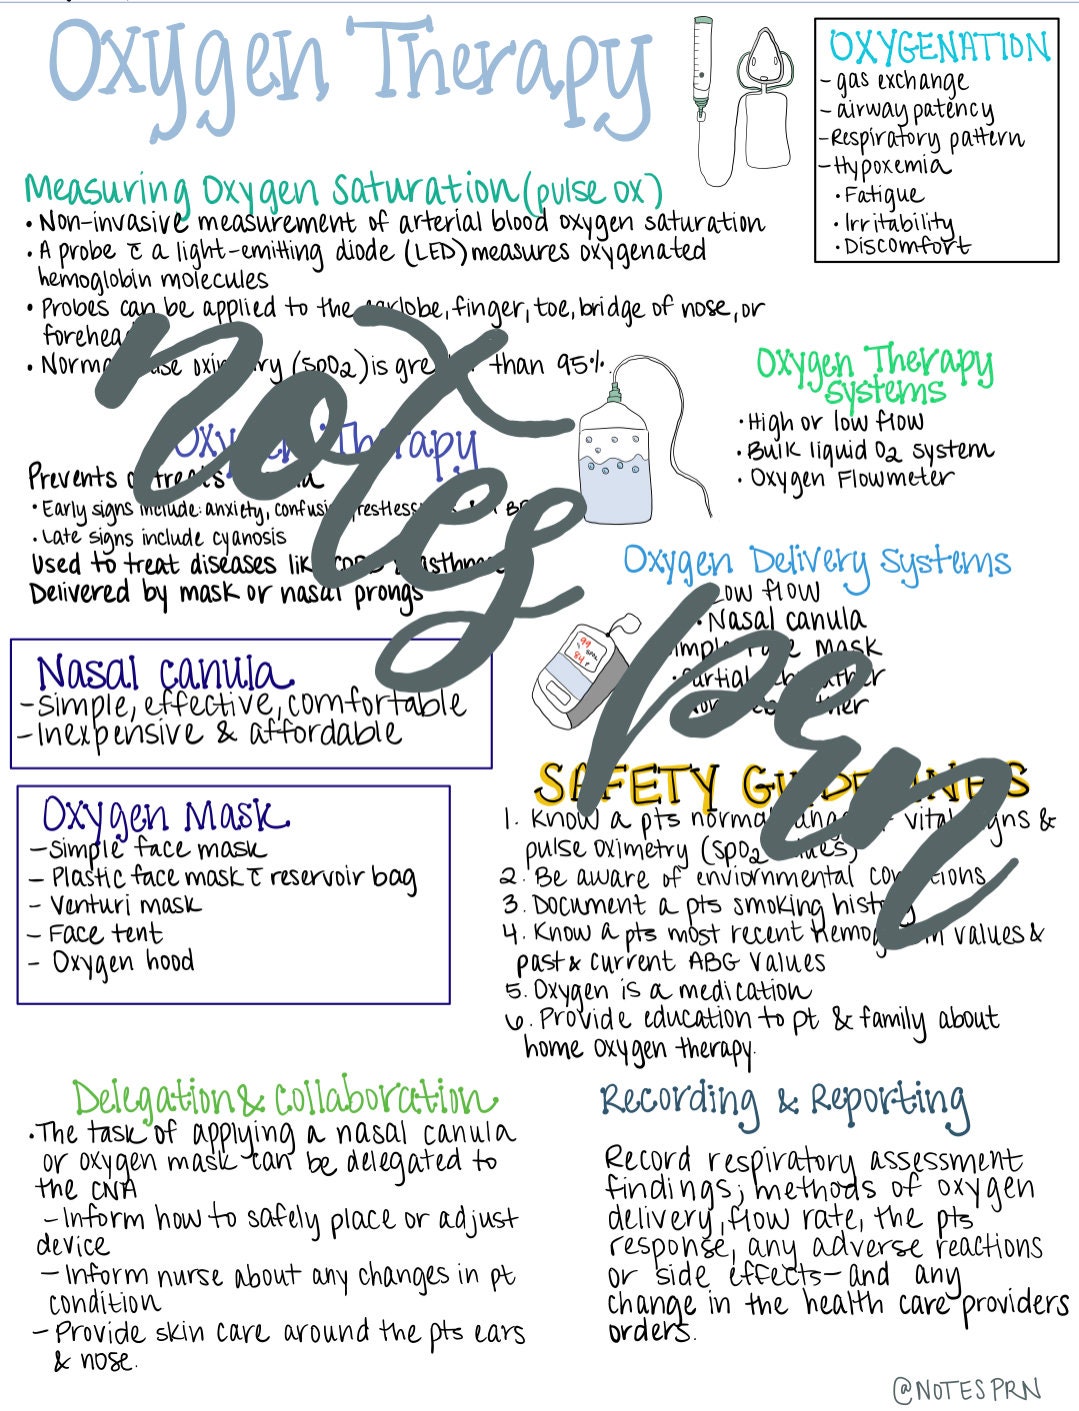 Oxygen Therapy
OXYGENATION
- gas exchange
- airway patency
- Respiratory pattern
- Hypoxemia
• Fatigue
• Irritability
• Discomfort
Measuring Oxygen Saturation (pulse ox)
• Non-invasive measurement of arterial blood oxygen saturation
• A probe c̄ a light-emitting diode (LED) measures oxygenated
hemoglobin molecules
• Probes can be applied to the earlobe, finger, toe, bridge of nose, or
forehead
• Normal pulse oximetry (SpO2) is greater than 95%.
Oxygen Therapy
Systems
• High or low flow
• Bulk liquid O2 system
• Oxygen Flowmeter
Oxygen Therapy
Prevents or treats
• Early signs include: anxiety, confusion, restlessness
• Late signs include cyanosis
Used to treat diseases like COPD & asthma
Delivered by mask or nasal prongs
Oxygen Delivery Systems
Low flow
• Nasal canula
Simple face mask
• Partial rebreather
Non rebreather
99
SpO2
84
Nasal canula
- Simple, effective, comfortable
- Inexpensive & affordable
Oxygen Mask
- Simple face mask
- Plastic face mask c̄ reservoir bag
- Venturi mask
- Face tent
- Oxygen hood
SAFETY GUIDELINES
1. Know a pts normal range of vital signs &
pulse oximetry (SpO2 values)
2. Be aware of enviornmental conditions
3. Document a pts smoking history
4. Know a pts most recent hemoglobin values &
past & current ABG values
5. Oxygen is a medication
6. Provide education to pt & family about
home oxygen therapy.
Delegation & Collaboration
• The task of applying a nasal canula
or oxygen mask can be delegated to
the CNA
- Inform how to safely place or adjust
device
- Inform nurse about any changes in pt
condition
- Provide skin care around the pts ears
& nose.
Recording & Reporting
Record respiratory assessment
findings; methods of oxygen
delivery, flow rate, the pts
response, any adverse reactions
or side effects - and any
change in the health care providers
orders.
notes
prn
@NOTESPRN